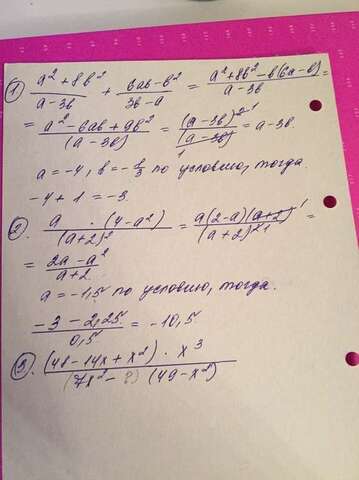 1) (a² + 8b²)/(a - 3b) + (6ab - b²)/(3b - a) = (a² + 8b² - b(6a - b))/(a - 3b) =
= (a² - 6ab + 9b²)/(a - 3b) = (a - 3b)²⁻¹/(a - 3b)₁ = a - 3b.
a = -4, b = -1/3 по условию, тогда.
-4 + 1 = -3.
2. a · (4 - a²)/(a + 2)² = a(2 - a)(a + 2)¹/(a + 2)²¹ =
= (2a - a²)/(a + 2)
a = -1,5 по условию, тогда.
(-3 - 2,25)/0,5 = -10,5
3. (48 - 14x + x²) · x³/(7x² - 8)(49 - x²)